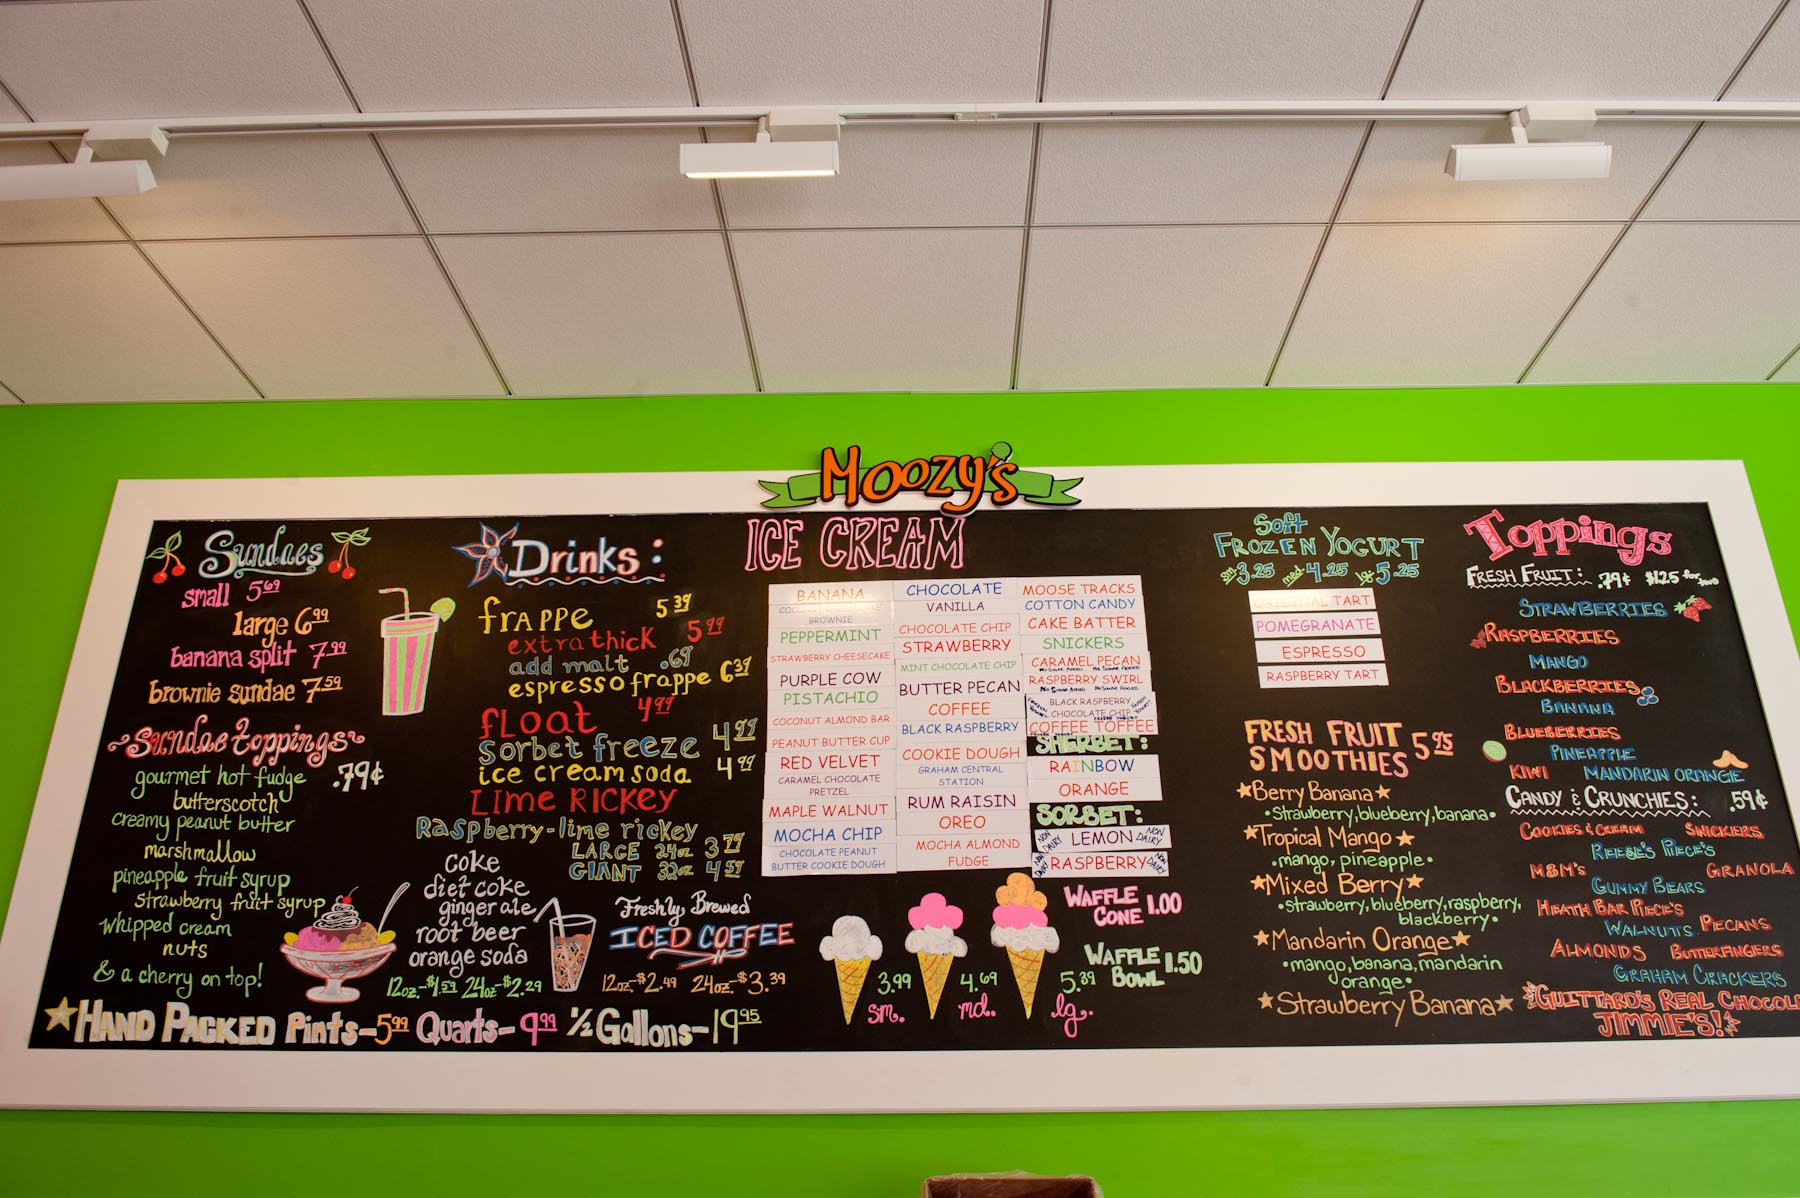 Moozy's
Sundaes
small 5.69
large 6.99
banana split 7.99
brownie sundae 7.59
Sundae toppings
.79¢
gourmet hot fudge
butterscotch
creamy peanut butter
marshmallow
pineapple fruit syrup
strawberry fruit syrup
whipped cream
nuts
& a cherry on top!
Drinks:
frappe 5.39
extra thick 5.99
add malt .69
espresso frappe 6.39
float 4.99
sorbet freeze 4.99
ice cream soda 4.99
LIME RICKEY
Raspberry-lime rickey
LARGE 24oz 3.79
GIANT 32oz 4.59
coke
diet coke
ginger ale
root beer
orange soda
12oz-$1.59 24oz-$2.29
Freshly Brewed
ICED COFFEE
12oz-$2.49 24oz-$3.39
HAND PACKED Pints-5.99 Quarts-9.99 ½ Gallons-19.95
ICE CREAM
BANANA
BROWNIE
PEPPERMINT
STRAWBERRY CHEESECAKE
PURPLE COW
PISTACHIO
COCONUT ALMOND BAR
PEANUT BUTTER CUP
RED VELVET
CARAMEL CHOCOLATE
PRETZEL
MAPLE WALNUT
MOCHA CHIP
CHOCOLATE PEANUT
BUTTER COOKIE DOUGH
CHOCOLATE
VANILLA
CHOCOLATE CHIP
STRAWBERRY
MINT CHOCOLATE CHIP
BUTTER PECAN
COFFEE
BLACK RASPBERRY
COOKIE DOUGH
GRAHAM CENTRAL
STATION
RUM RAISIN
OREO
MOCHA ALMOND
FUDGE
MOOSE TRACKS
COTTON CANDY
CAKE BATTER
SNICKERS
CARAMEL PECAN
NO SUGAR ADDED NO SUGAR ADDED
RASPBERRY SWIRL
NO SUGAR ADDED NO SUGAR ADDED
BLACK RASPBERRY
CHOCOLATE CHIP
FROZEN YOGURT
COFFEE TOFFEE
SHERBET:
RAINBOW
ORANGE
SORBET:
NON DAIRY LEMON NON DAIRY
NON DAIRY RASPBERRY NON DAIRY
3.99 sm.
4.69 md.
5.39 lg.
WAFFLE
CONE 1.00
WAFFLE
BOWL 1.50
Soft
FROZEN YOGURT
sm 3.25 med 4.25 lg 5.25
ORIGINAL TART
POMEGRANATE
ESPRESSO
RASPBERRY TART
FRESH FRUIT
SMOOTHIES 5.95
Berry Banana
•strawberry, blueberry, banana•
Tropical Mango
•mango, pineapple•
Mixed Berry
•strawberry, blueberry, raspberry,
blackberry•
Mandarin Orange
•mango, banana, mandarin
orange•
Strawberry Banana
Toppings
FRESH FRUIT: .79¢ $1.25 for two
STRAWBERRIES
RASPBERRIES
MANGO
BLACKBERRIES
BANANA
BLUEBERRIES
PINEAPPLE
KIWI MANDARIN ORANGE
CANDY & CRUNCHIES: .59¢
COOKIES & CREAM SNICKERS
REESE'S PIECE'S
M&M'S GRANOLA
GUMMY BEARS
HEATH BAR PIECE'S
WALNUTS PECANS
ALMONDS BUTTERFINGERS
GRAHAM CRACKERS
GUITTARD'S REAL CHOCOL
JIMMIE'S!